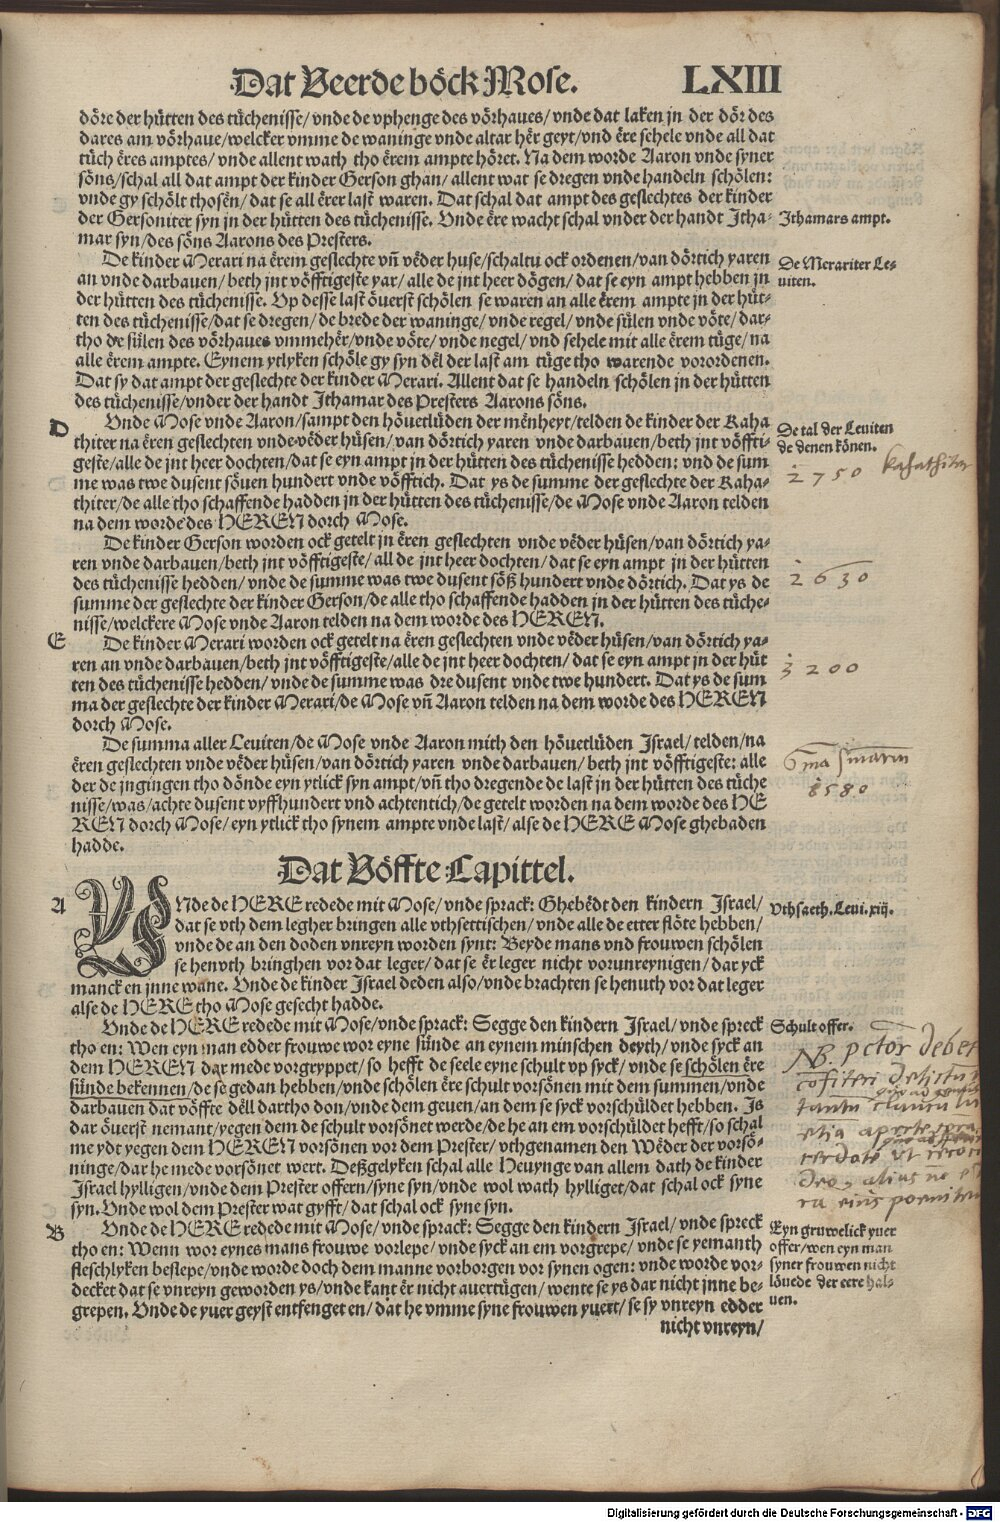 Dat Veerde böck Mose. LXIII
döre der hütten des tüchenisse/ vnde de vphenge des vörhaues/ vnde dat laken jn der dör des
dares am vörhaue/welcker vmme de waninge vnde altar hër geyt/vnd ëre sehele vnde all dat
tüch ëres amptes/ vnde allent wath tho ërem ampte höret. Na dem worde Aaron vnde syner
söns/schal all dat ampt der kinder Gerson ghan/ allent wat se dregen vnde handeln schölen:
vnde gy schölt thosën/ dat se all ërer last waren. Dat schal dat ampt des geslechtes der kinder
der Gersoniter syn jn der hütten des tüchenisse. Vnde ëre wacht schal vnder der handt Itha-
mar syn/des söns Aarons des Presters.
Ithamars ampt.
De kinder Merari na ërem geslechte vñ vëder huse/schaltu ock ordenen/van dörtich yaren
an vnde darbauen/ beth jnt vöfftigeste yar/ alle de jnt heer dögen/ dat se eyn ampt hebben jn
der hütten des tüchenisse. Vp desse last öuerst schölen se waren an alle ërem ampte jn der hüt-
ten des tüchenisse/dat se dregen/ de brede der waninge/ vnde regel/ vnde sülen vnde vöte/ dar-
tho de sülen des vörhaues vmmehër/vnde vöte/ vnde negel/ vnd sehele mit alle ërem tüge/ na
alle ërem ampte. Eynem ytlyken schöle gy syn dël der last am tüge tho warende vorordenen.
Dat sy dat ampt der geslechte der kinder Merari. Allent dat se handeln schölen jn der hütten
des tüchenisse/vnder der handt Ithamar des Presters Aarons söns.
De Merariter Le-
uiten.
D
Vnde Mose vnde Aaron/sampt den höuetlüden der mënheyt/telden de kinder der Kaha
thiter na ëren geslechten vnde vëder hüsen/ van dörtich yaren vnde darbauen/beth jnt vöffti-
geste/alle de jnt heer dochten/dat se eyn ampt jn der hütten des tüchenisse hedden: vnd de sum
me was twe dusent söuen hundert vnde vöfftich. Dat ys de summe der geslechte der Kaha-
thiter/de alle tho schaffende hadden jn der hütten des tüchenisse/de Mose vnde Aaron telden
na dem worde des HEREN dorch Mose.
De tal der Leuiten
de denen könen.
2750 kahathiter
De kinder Gerson worden ock getelt jn ëren geslechten vnde vëder hüsen/van dörtich ya-
ren vnde darbauen/beth jnt vöfftigeste/ all de jnt heer dochten/ dat se eyn ampt jn der hütten
des tüchenisse hedden/ vnde de summe was twe dusent söß hundert vnde dörtich. Dat ys de
summe der geslechte der kinder Gerson/de alle tho schaffende hadden jn der hütten des tüche-
nisse/welckere Mose vnde Aaron telden na dem worde des HEREN.
2630
E
De kinder Merari worden ock getelt na ëren geslechten vnde vëder hüsen/van dörtich ya-
ren an vnde darbauen/beth jnt vöfftigeste/alle de jnt heer dochten/ dat se eyn ampt jn der hüt
ten des tüchenisse hedden/ vnde de summe was dre dusent vnde twe hundert. Dat ys de sum
ma der geslechte der kinder Merari/de Mose vñ Aaron telden na dem worde des HEREN
dorch Mose.
3200
De summa aller Leuiten/de Mose vnde Aaron mith den höuetlüden Israel/ telden/na
ëren geslechten vnde vëder hüsen/van dörtich yaren vnde darbauen/ beth jnt vöfftigeste: alle
der de jngingen tho dönde eyn ytlick syn ampt/vñ tho dregende de last jn der hütten des tüche
nisse/was/achte dusent vyffhundert vnd achtentich/de getelt worden na dem worde des HE
REN dorch Mose/ eyn ytlick tho synem ampte vnde last/ alse de HERE Mose ghebaden
hadde.
8580
Dat Vöffte Capittel.
A
VNde de HERE redede mit Mose/ vnde sprack: Ghebëdt den kindern Israel/
dat se vth dem legher bringen alle vthsettischen/ vnde alle de etter flöte hebben/
vnde de an den doden vnreyn worden synt: Beyde mans vnd frouwen schölen
se henvth bringhen vor dat leger/ dat se ër leger nicht vorunreynigen/ dar yck
manck en jnne wane. Vnde de kinder Israel deden also/vnde brachten se henuth vor dat leger
alse de HERE tho Mose gesecht hadde.
Vthsaeth. Leui. xiij.
Vnde de HERE redede mit Mose/vnde sprack: Segge den kindern Israel/ vnde spreck
tho en: Wen eyn man edder frouwe wor eyne sünde an eynem minschen deyth/ vnde syck an
dem HEREN dar mede vorgryppet/ so hefft de seele eyne schult vp syck/ vnde se schölen ëre
sünde bekennen/de se gedan hebben/vnde schölen ëre schult vorsönen mit dem summen/vnde
darbauen dat vöffte dëll dartho don/vnde dem geuen/an dem se syck vorschüldet hebben. Is
dar öuerst nemant/yegen dem de schult vorsönet werde/de he an em vorschüldet hefft/so schal
me ydt yegen dem HEREN vorsönen vor dem Prester/ vthgenamen den Wëder der vorsö-
ninge/dar he mede vorsönet wert. Deßgelyken schal alle Heuynge van allem dath de kinder
Israel hylligen/vnde dem Prester offern/syne syn/vnde wol wath hylliget/dat schal ock syne
syn. Vnde wol dem Prester wat gyfft/ dat schal ock syne syn.
Schult offer.
NB. pctor debet
cofiteri
B
Vnde de HERE redede mit Mose/vnde sprack: Segge den kindern Israel/ vnde spreck
tho en: Wenn wor eynes mans frouwe vorlepe/ vnde syck an em vorgrepe/ vnde se yemanth
fleschlyken beslepe/vnde worde doch dem manne vorborgen vor synen ogen: vnde worde vor-
decket dat se vnreyn geworden ys/vnde kant ër nicht auertügen/ wente se ys dar nicht jnne be-
grepen. Vnde de yuer geyst entfenget en/ dat he vmme syne frouwen yuert/ se sy vnreyn edder
nicht vnreyn/
Eyn gruwelick yuer
offer/wen eyn man
syner frouwen nicht
löuede der eere hal-
uen.
Digitalisierung gefördert durch die Deutsche Forschungsgemeinschaft - DFG